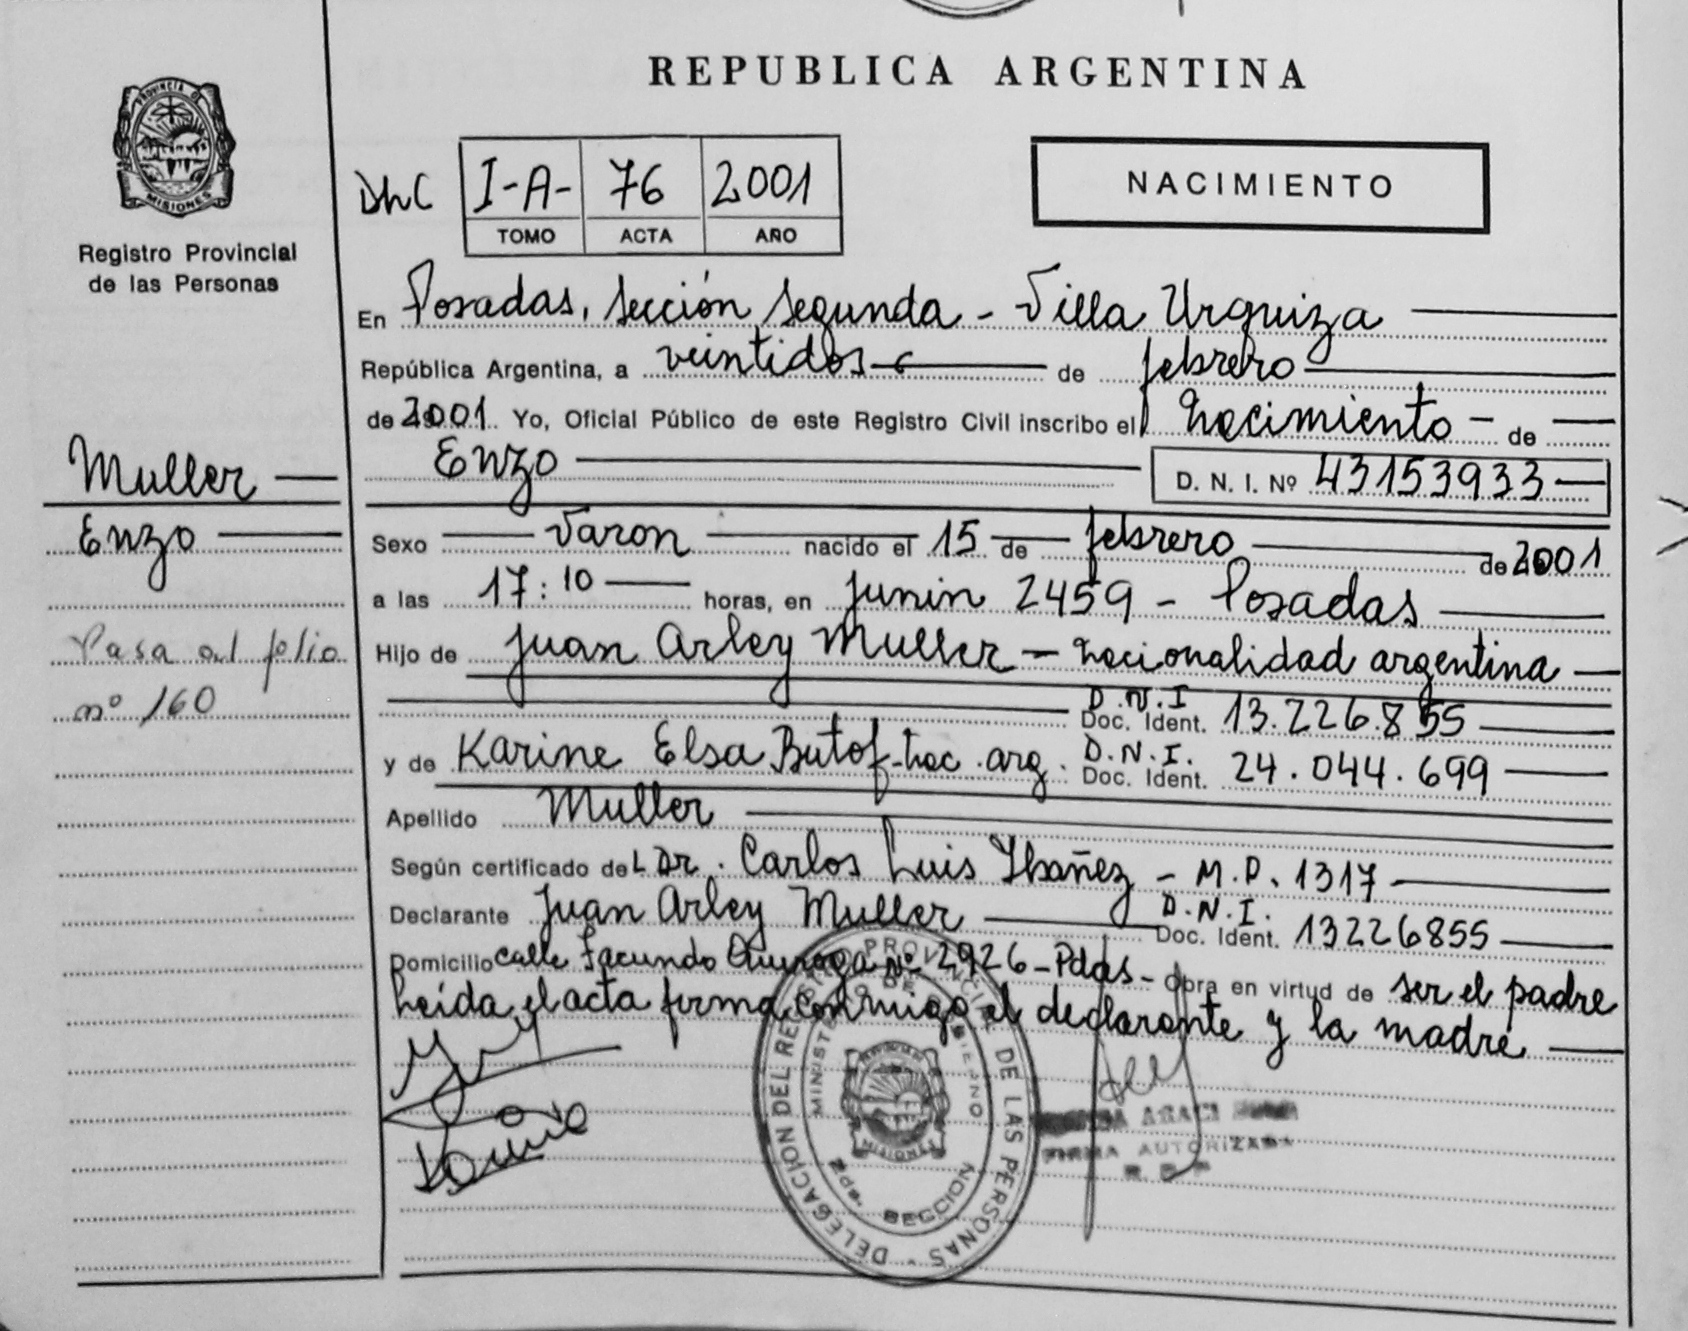 REPUBLICA ARGENTINA
PROVINCIA DE
MISIONES
Registro Provincial
de las Personas
I-A- 76 2001
TOMO ACTA AÑO
NACIMIENTO
En Posadas, Sección Segunda - Villa Urquiza
República Argentina, a veintidos de febrero
de 2001 Yo, Oficial Público de este Registro Civil inscribo el nacimiento - de
Enzo D. N. I. Nº 43153933
Muller
Enzo
Sexo Varon nacido el 15 de febrero de 2001
a las 17:10 horas, en Junin 2459 - Posadas
Pasa al folio
nº 160
Hijo de Juan Arley Muller - nacionalidad argentina
D.N.I
Doc. Ident. 13.226.855
y de Karine Elsa Butof - nac. arg. D.N.I. Doc. Ident. 24.044.699
Apellido Muller
Según certificado del Dr. Carlos Luis Ibañez - M.P. 1317
Declarante Juan Arley Muller D.N.I. Doc. Ident. 13226855
Domicilio calle Facundo Quiroga Nº 2926 - Pdas - Obra en virtud de ser el padre
Leída el acta firma conmigo el declarante y la madre
DELEGACION DEL REGISTRO PROVINCIAL DE LAS PERSONAS
MINISTERIO DE GOBIERNO
MISIONES
2da. SECCION
FIRMA AUTORIZADA